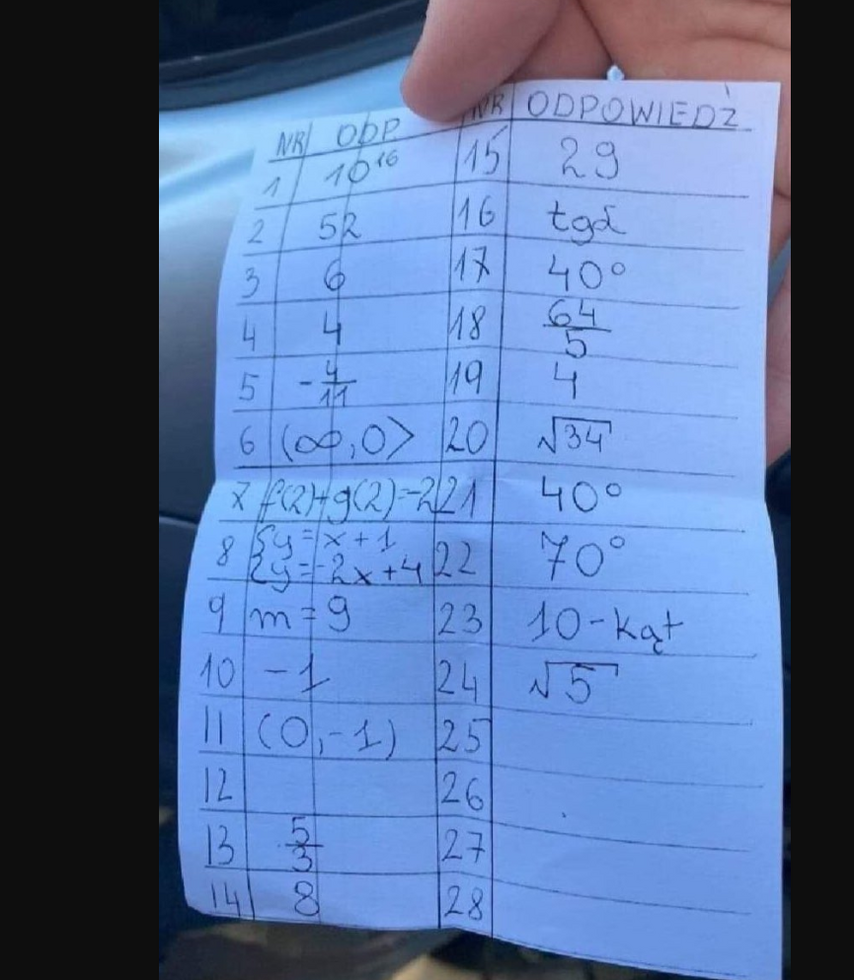 NR ODP. NR ODPOWIEDŹ
1 10¹⁶ 15 29
2 52 16 tgα
3 6 17 40°
4 4 18 64/5
5 -4/11 19 4
6 (∞,0> 20 √34
7 f(2)+g(2)=-2 21 40°
8 {y=x+1
{y=-2x+4 22 70°
9 m=9 23 10-kąt
10 -1 24 √5
11 (0,-1) 25
12 26
13 5/3 27
14 8 28